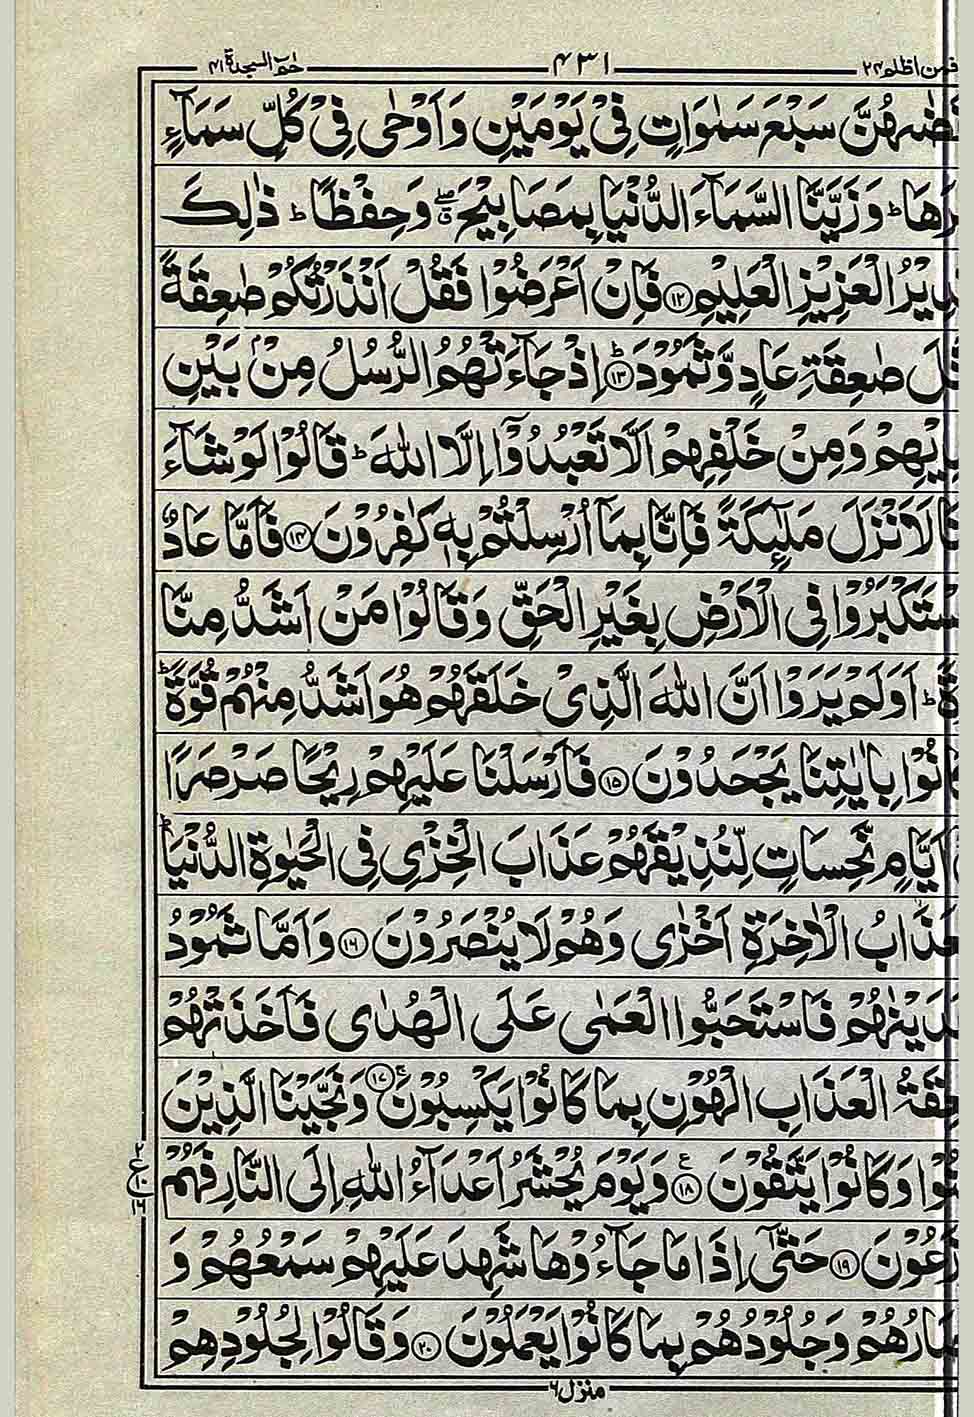 فمن اظلم ۲۴ ۴۳۱ حٰمٓ السجدة ۴۱
ضٰىهُنَّ سَبْعَ سَمٰوَاتٍ فِیْ یَوْمَیْنِ وَاَوْحٰی فِیْ کُلِّ سَمَآءٍ
رَهَا ؕ وَزَیَّنَّا السَّمَآءَ الدُّنْیَا بِمَصَابِیْحَ ۖۗ وَحِفْظًا ؕ ذٰلِکَ
دِیْرُ الْعَزِیْزِ الْعَلِیْمِ ۱۲ فَاِنْ اَعْرَضُوْا فَقُلْ اَنْذَرْتُکُمْ صٰعِقَةً
ثْلَ صٰعِقَةِ عَادٍ وَّثَمُوْدَ ؕ ۱۳ اِذْ جَآءَتْهُمُ الرُّسُلُ مِنْۢ بَیْنِ
یْهِمْ وَمِنْ خَلْفِهِمْ اَلَّا تَعْبُدُوْۤا اِلَّا اللّٰهَ ؕ قَالُوْا لَوْ شَآءَ
نَا لَاَنْزَلَ مَلٰٓئِکَةً فَاِنَّا بِمَاۤ اُرْسِلْتُمْ بِهٖ کٰفِرُوْنَ ۱۴ فَاَمَّا عَادٌ
سْتَکْبَرُوْا فِی الْاَرْضِ بِغَیْرِ الْحَقِّ وَقَالُوْا مَنْ اَشَدُّ مِنَّا
ةً ؕ اَوَلَمْ یَرَوْا اَنَّ اللّٰهَ الَّذِیْ خَلَقَهُمْ هُوَ اَشَدُّ مِنْهُمْ قُوَّةً ؕ
انُوْا بِاٰیٰتِنَا یَجْحَدُوْنَ ۱۵ فَاَرْسَلْنَا عَلَیْهِمْ رِیْحًا صَرْصَرًا
اَیَّامٍ نَّحِسَاتٍ لِّنُذِیْقَهُمْ عَذَابَ الْخِزْیِ فِی الْحَیٰوةِ الدُّنْیَا ؕ
عَذَابُ الْاٰخِرَةِ اَخْزٰی وَهُمْ لَا یُنْصَرُوْنَ ۱۶ وَاَمَّا ثَمُوْدُ
دَیْنٰهُمْ فَاسْتَحَبُّوا الْعَمٰی عَلَی الْهُدٰی فَاَخَذَتْهُمْ
عِقَةُ الْعَذَابِ الْهُوْنِ بِمَا کَانُوْا یَکْسِبُوْنَ ۚ ۱۷ وَنَجَّیْنَا الَّذِیْنَ
نُوْا وَکَانُوْا یَتَّقُوْنَ ۱۸ ع وَیَوْمَ یُحْشَرُ اَعْدَآءُ اللّٰهِ اِلَی النَّارِ فَهُمْ
۲
ع ۱۰
۱۶
زَعُوْنَ ۱۹ حَتّٰۤی اِذَا مَا جَآءُوْهَا شَهِدَ عَلَیْهِمْ سَمْعُهُمْ وَ
صَارُهُمْ وَجُلُوْدُهُمْ بِمَا کَانُوْا یَعْمَلُوْنَ ۲۰ وَقَالُوْا لِجُلُوْدِهِمْ
منزل ۶